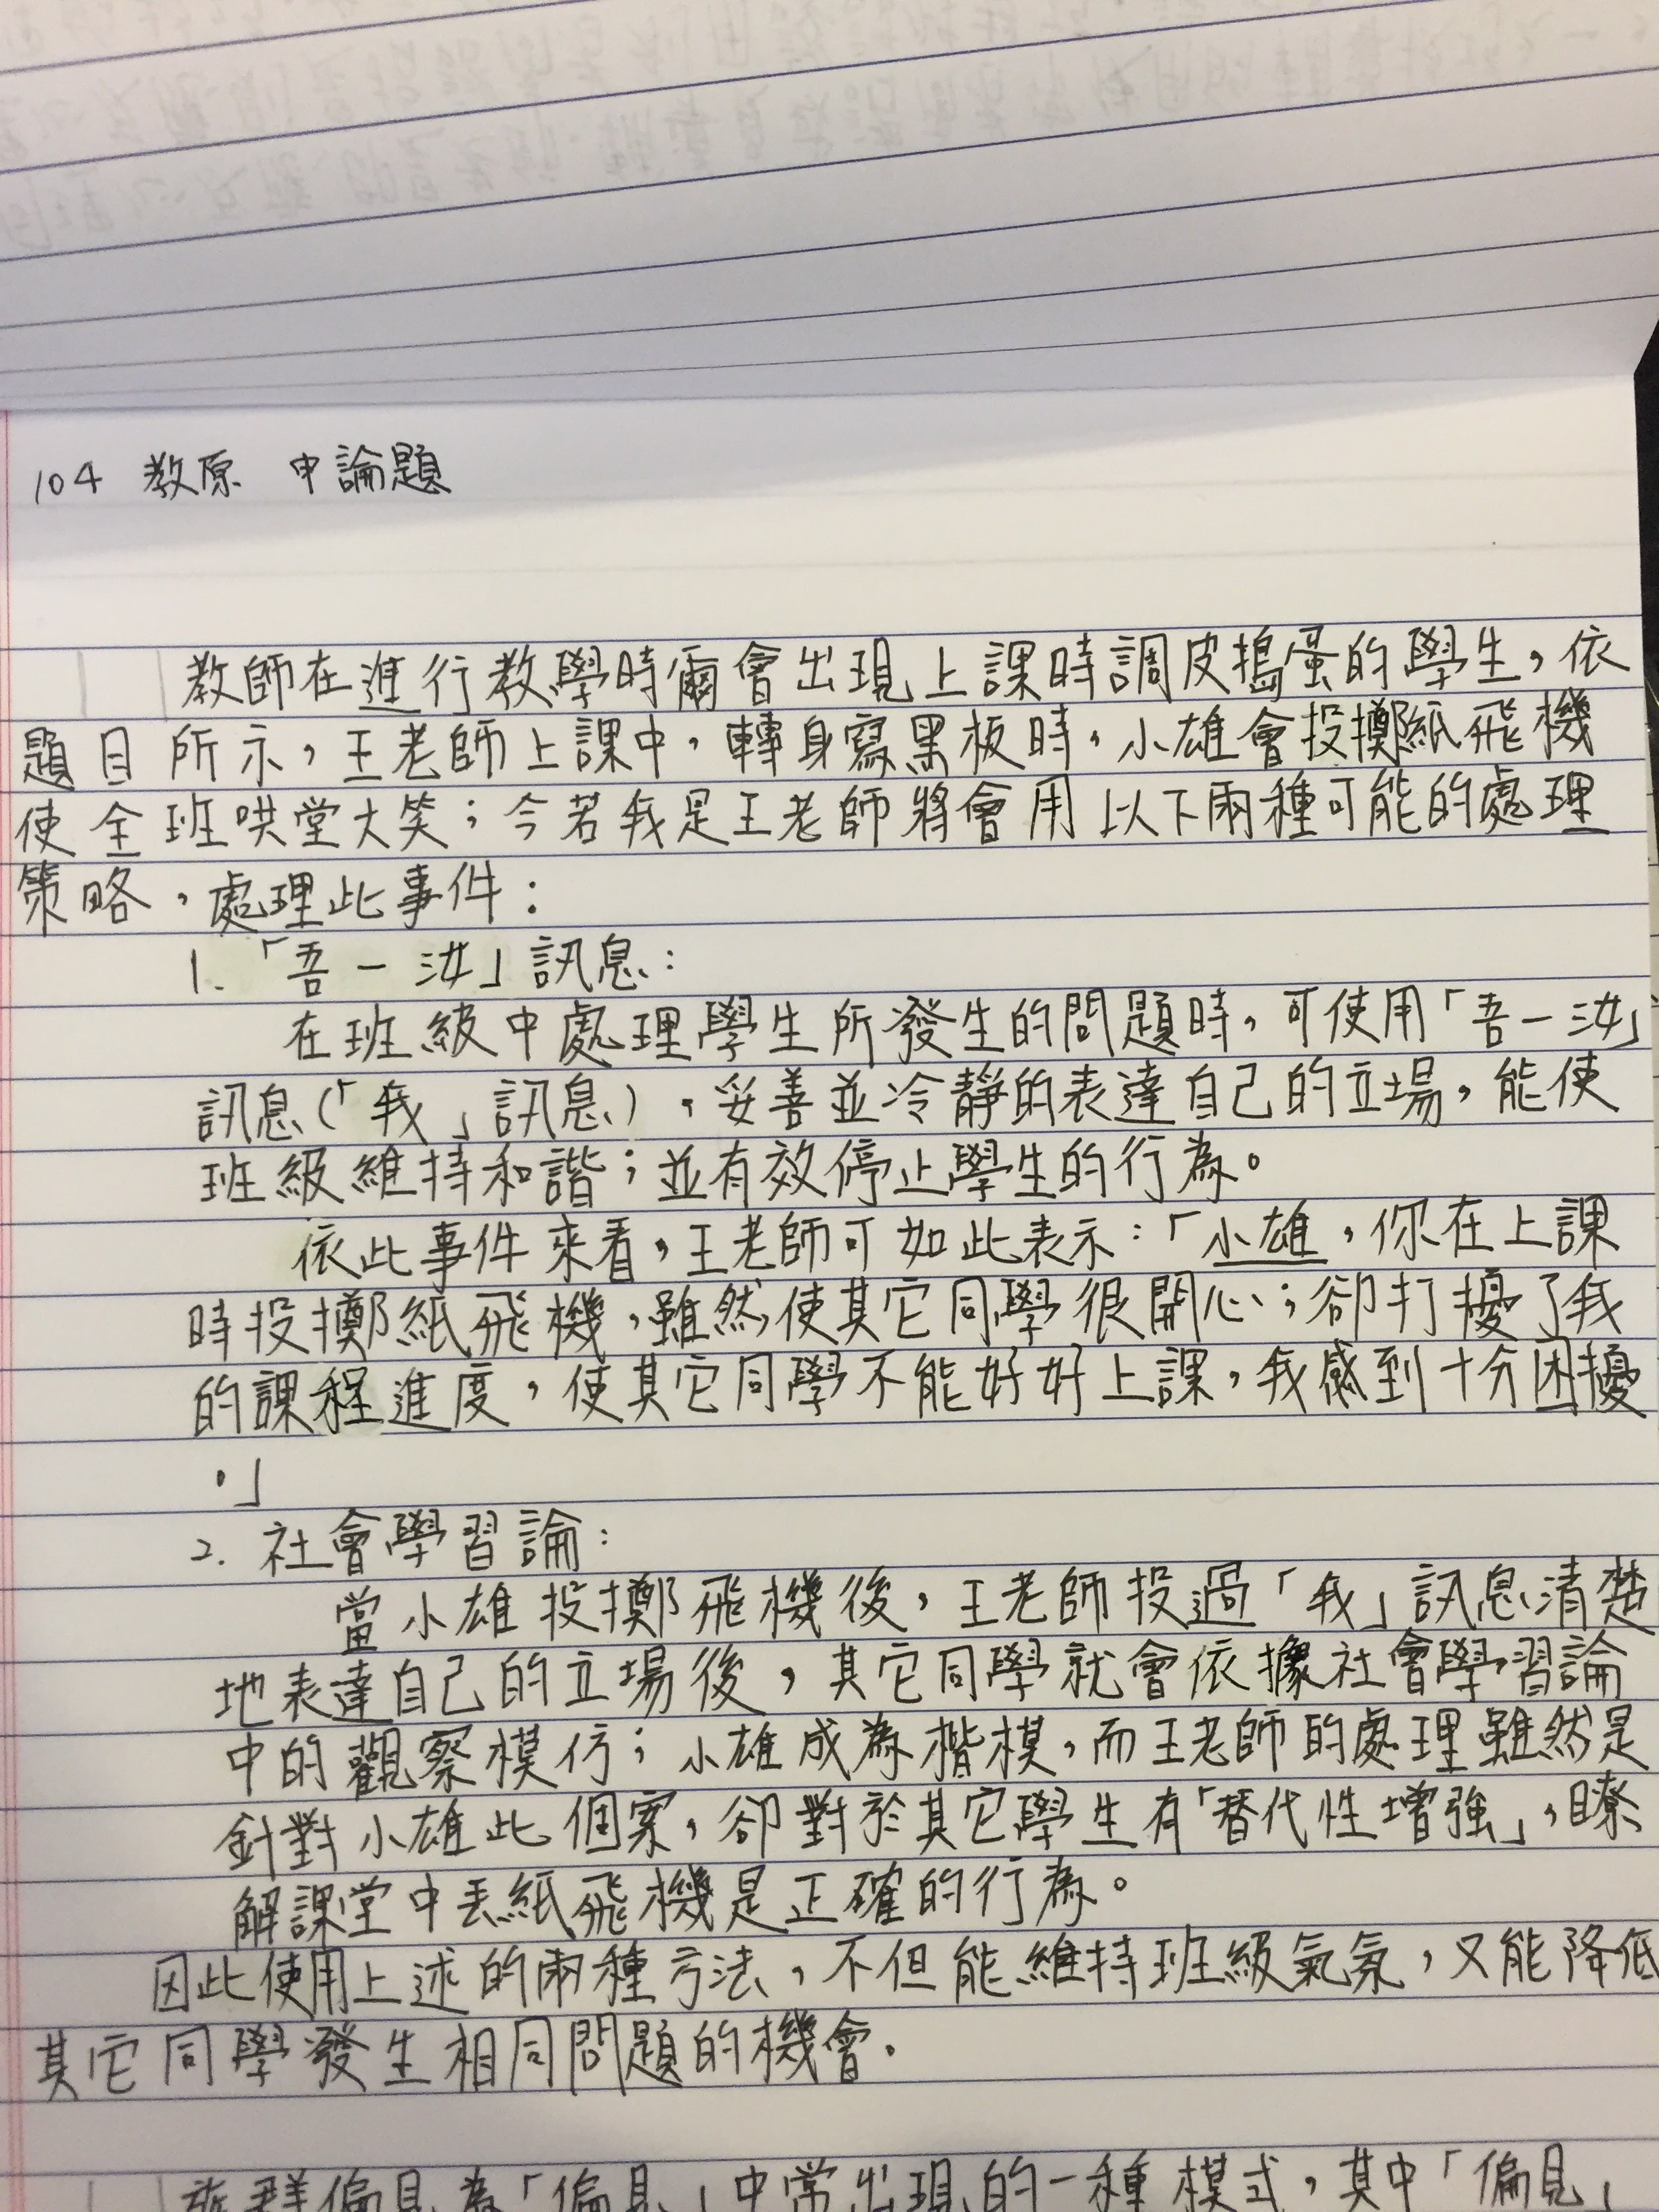 104 教原 申論題
教師在進行教學時爾會出現上課時調皮搗蛋的學生，依
題目所示，王老師上課中，轉身寫黑板時，小雄會投擲紙飛機
使全班哄堂大笑；今若我是王老師將會用以下兩種可能的處理
策略，處理此事件：
1.「吾－汝」訊息：
在班級中處理學生所發生的問題時，可使用「吾－汝」
訊息（「我」訊息），妥善並冷靜的表達自己的立場，能使
班級維持和諧；並有效停止學生的行為。
依此事件來看，王老師可如此表示：「小雄，你在上課
時投擲紙飛機，雖然使其它同學很開心；卻打擾了我
的課程進度，使其它同學不能好好上課，我感到十分困擾
。」
2. 社會學習論：
當小雄投擲飛機後，王老師投過「我」訊息清楚
地表達自己的立場後，其它同學就會依據社會學習論
中的觀察模仿；小雄成為楷模，而王老師的處理雖然是
針對小雄此個案，卻對於其它學生有「替代性增強」，瞭
解課堂中丟紙飛機是正確的行為。
因此使用上述的兩種方法，不但能維持班級氣氛，又能降低
其它同學發生相同問題的機會。
族群偏見為「偏見」中常出現的一種模式，其中「偏見」